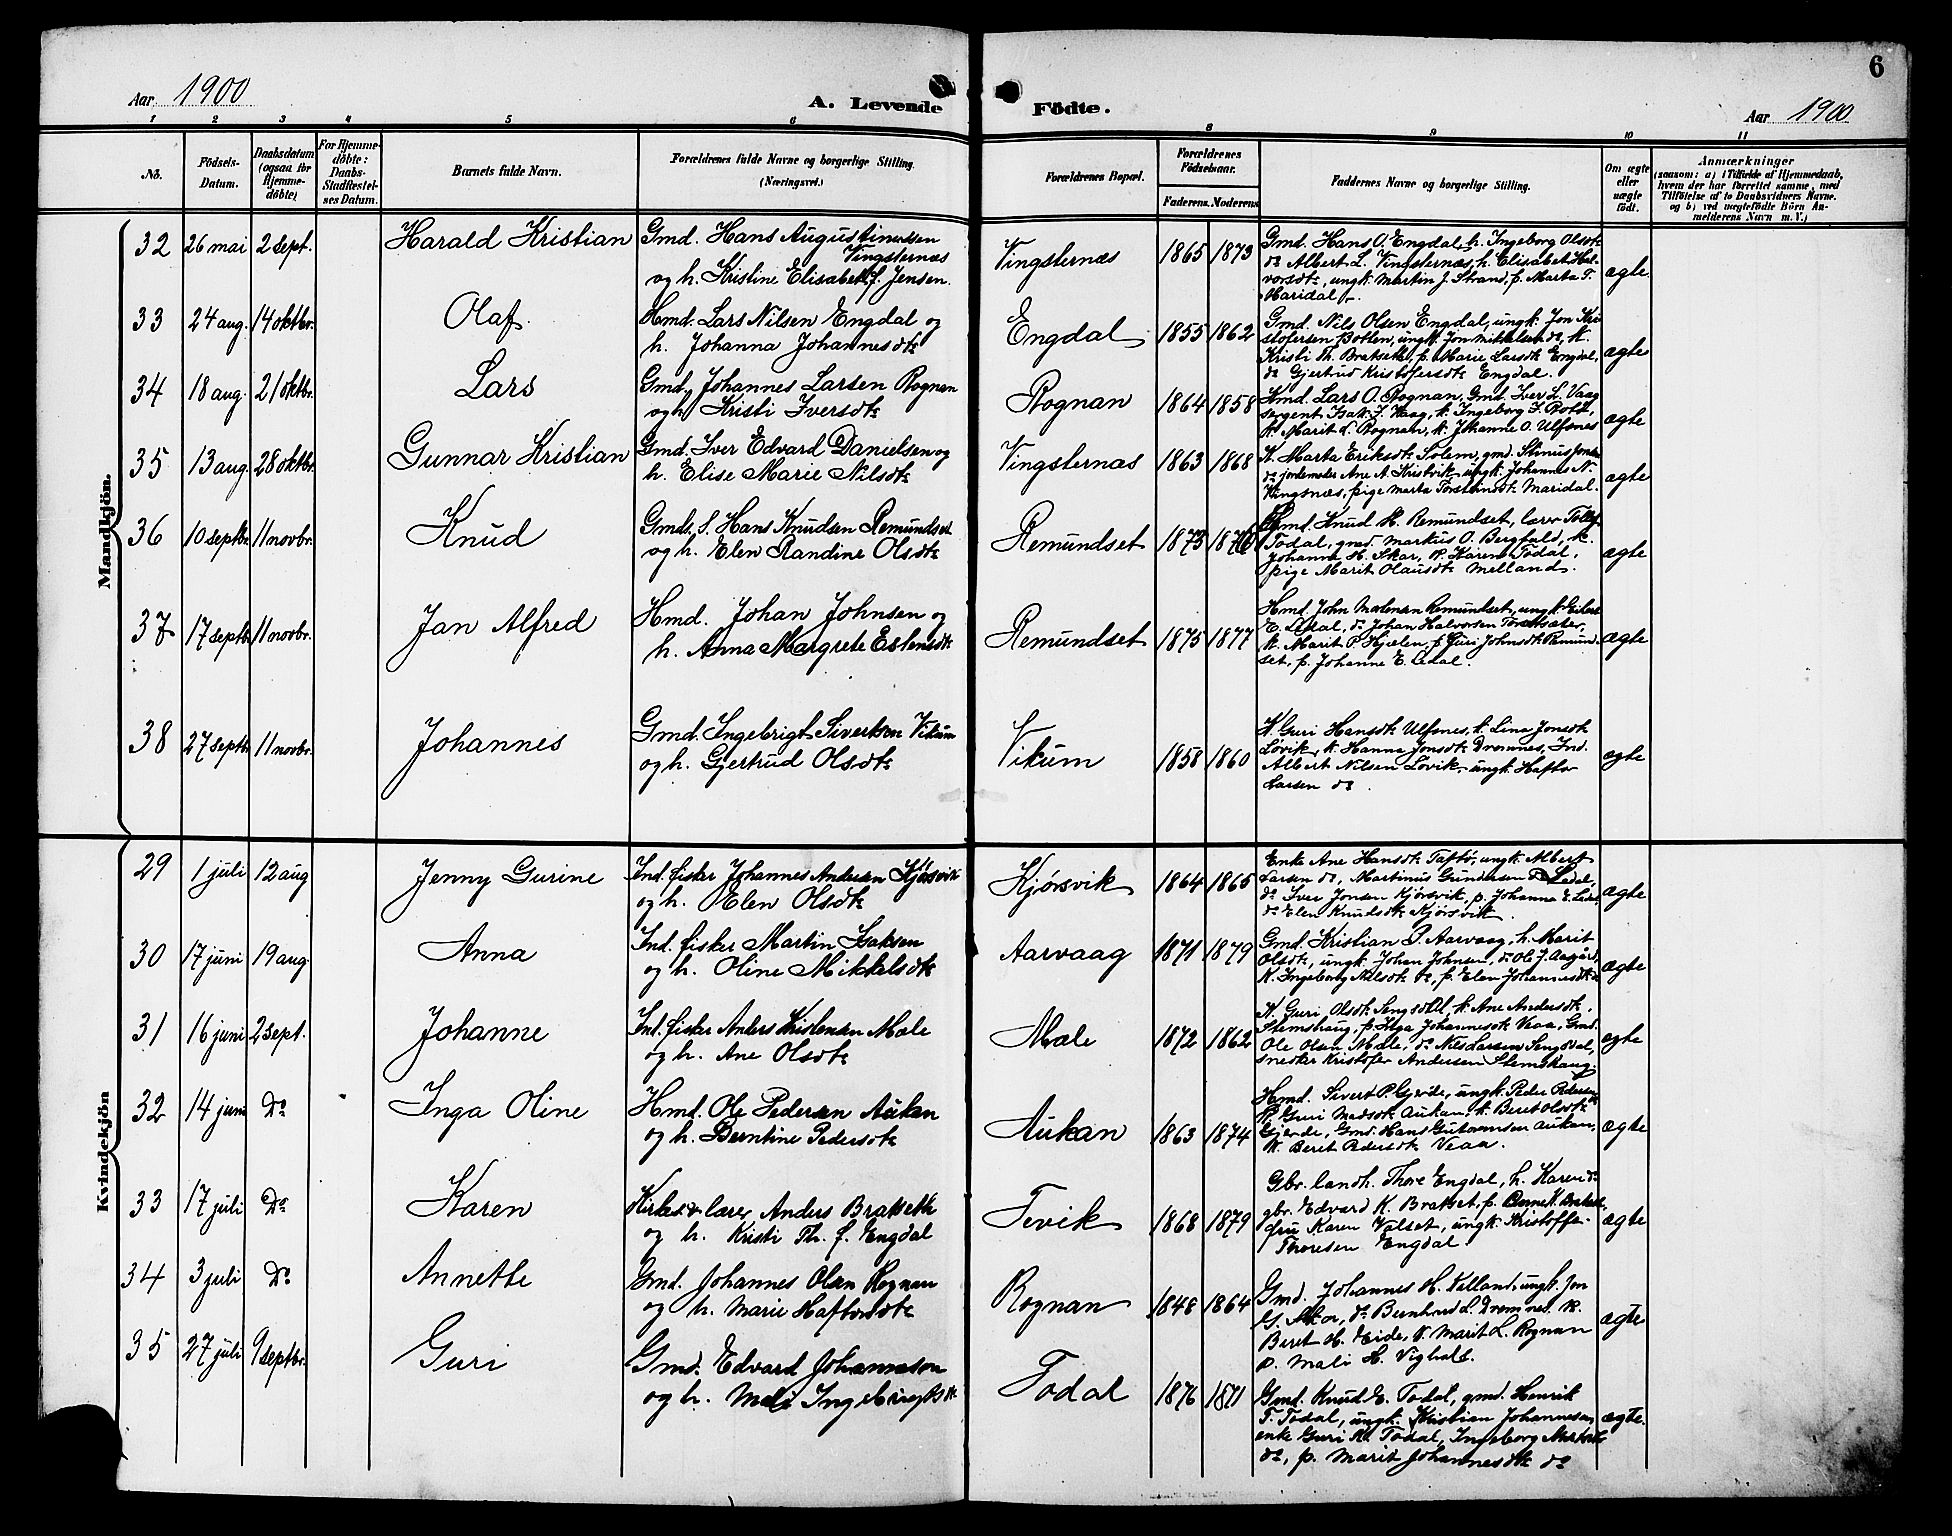 6
Aar 1900
A. Levende Födte.
Aar 1900
1 2 3 4 5 6 8 9 10 11
No.
Födsels-Datum.
Daabsdatum (ogsaa for Hjemme-döbte)
For Hjemme-döbte: Daabs-Stadfæstel-ses Datum.
Barnets fulde Navn.
Forældrenes fulde Navne og borgerlige Stilling. (Næringsvei.)
Forældrenes Bopæl.
Forældrenes Födselsaar.
Faderens. Moderens.
Faddernes Navne og borgerlige Stilling.
Om ægte eller uægte födt.
Anmærkninger
(saasom: a) i Tilfælde af Hjemmedaab,
hvem der har forrettet samme, med
Tilföielse af to Daabsvidners Navne.
og b) ved uægtefödte Börn An-
melderens Navn m. V.)
Mandkjön.
32 26 mai 2 sept. Harald Kristian
Gmd. Hans Augustinussen
Vingsternæs
og h. Kristine Elisabeth f. Jensen.
Vingsternæs 1865 1873
Gmd. Hans O. Engdal, h. Ingeborg Olsdtr
do Albert L. Vingsternæs, h. Elisabet Hal-
vorsdtr, ungk. Martin J. Strand, p. Marta T.
Maridal.
ægte
33 24 aug. 14 oktbr. Olaf
Hmd. Lars Nilsen Engdal og
h. Johanna Johannesdtr
Engdal 1855 1862
Gmd. Nils Olsen Engdal, ungk. Jon Kri-
stofersen Botten, ungk. Jon Mikkelsen do, k.
Kristi Th. Bratset, p. Marie Larsdtr Engdal,
do Gjertrud Kristofersdtr Engdal.
ægte
34 18 aug. 21 oktbr. Lars
Gmd. Johannes Larsen Rognan
og h. Kristi Iversdtr
Rognan 1864 1858
Hmd. Lars O. Rognan, Gmd. Iver L. Vaag
sergent Isak J. Vaag, k. Ingeborg J.
k. Marit L. Rognan, k. Johanne O. Ulfsnes
ægte
35 13 aug. 28 oktbr. Gunnar Kristian
Gmd. Iver Edvard Danielsen og
h. Elise Marie Nilsdtr
Vingsternæs 1863 1868
K. Marta Eriksdtr Solem, gmd. Stinus
do jordemoder Ane A. Kristvik, ungk. Johannes N.
Vingsnæs, pige Marta Torsteinsdtr Maridal.
ægte
36 10 septbr. 11 novbr. Knud
Gmds. S. Hans Knudsen Remundset
og h. Elen Randine Olsdtr
Remundset 1873 1876
Gmd. Knud H. Remundset, lærer
Todal, gmd. Markus O. Bergfald, k.
Johanna H. Skar, p. Karen Todal,
pige Marit Olausdtr Melland.
ægte
37 17 septbr. 11 novbr. Jan Alfred
Hmd. Johan Johnsen og
h. Anna Margrete Estensdtr
Remundset 1875 1877
Hmd. John Remundset, ungk.
E. Ledal, do Johan Halvorsen Torsetsæter,
k. Marit P. Hjælen, p. Guri Johnsdtr Remund-
set, p. Johanne E. Ledal.
ægte
38 27 septbr. 11 novbr. Johannes
Gmd. Ingebrigt Sivertsen Vikum
og h. Gjertrud Olsdtr
Vikum 1858 1860
K. Guri Hansdtr Ulfsnes, k. Lina Jonsdtr
Lövik, k. Hanna Jonsdtr Dromnes, Ind.
Albert Nilsen Lovik, ungk. Haftor
Larsen do.
ægte
Kvindekjön
29 1 juli 12 aug Jenny Gurine
Ind. fisker Johannes Andersen Kjörsvik
og h. Elen Olsdtr
Kjörsvik 1864 1865
Enke Ane Hansdtr Taftö, ungk. Albert
Larsen do, Martinus Gundersen Ledal,
do Iver Jonsen Kjörsvik, p. Johanna E. Ledal,
do Elen Knudsdtr Kjörsvik.
ægte
30 17 juni 19 aug. Anna
Ind. fisker Martin Isaksen
og h. Oline Mikkelsdtr
Aarvaag 1871 1879
Gmd. Kristian P. Aarvaag, h. Marit
Olsdtr, ungk. Johan Johnsen, do Ol. J. Aasgård,
K. Ingeborg Nilsdtr do, p. Elen Johannesdtr do
ægte
31 16 juni 2 sept. Johanne
Ind. fisker Anders Kristensen Mæle
og h. Ane Olsdtr
Mæle 1872 1862
K. Guri Olsdtr Sengsdal, k. Ane Andersdtr
Stemshaug, p. Helga Johannesdtr Veaa, Gmd.
Ole Olsen Mæle, do Nils Larsen Sengsdal,
snedker Kristofer Andersen Stemshaug.
ægte
32 14 juni Do Inga Oline
Hmd. Ole Pedersen Aukan
og h. Berntine Pedersdtr
Aukan 1863 1874
Hmd. Sivert P. Gjerde, ungk. Peder Pedersen
K. Guri Madsdtr Aukan, k. Beret Olsdtr
Gjerde, Gmd. Hans Guttormsen Aukan,
K. Beret Pedersdtr Veaa.
ægte
33 17 juli Do Karen
Kirkes. & lærer Anders Bratseth
og h. Kristi Th. f. Engdal
Tevik 1868 1879
Gbr. landh. Thore Engdal, h. Karen do
gbr. Edvard K. Bratset, p.
fru Karen Valset, ungk. Kristoffer
Thoresen Engdal.
ægte
34 3 juli Do Annette
Gmd. Johannes Olsen Rognan
og h. Marie Haftorsdtr
Rognan 1848 1864
Gmd. Johannes H. Villand, ungk. Jon
G. do Bernhard L. Dromnes, K.
Beret H. Eide, k. Marit L. Rognan
p. Mali H.
ægte
35 27 juli 9 septbr. Guri
Gmd. Edvard Johannesen
og h. Mali Ingebrigtsdtr
Todal 1876 1871
Gmd. Knud E. Todal, gmd. Henrik
T. Todal, ungk. Kristian Johannesen,
enke Guri K. Todal, Ingeborg
do, p. Marit Johannesdtr do
ægte.